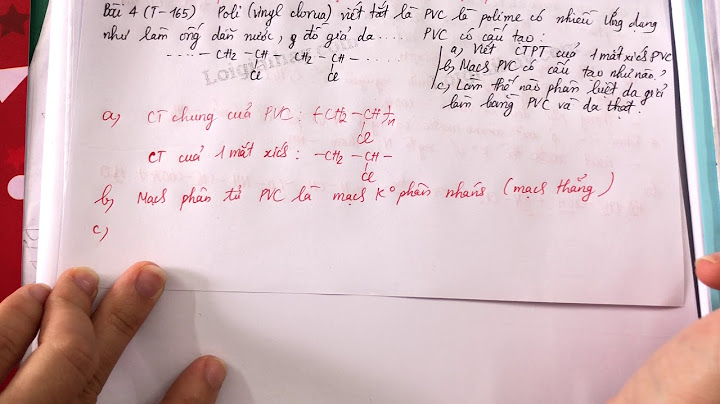 Bài 4 (T-165) Poli (vinyl clorua) viết tắt là PVC là polime có nhiều ứng dụng
như làm ống dẫn nước, đồ giả da..... PVC có cấu tạo:
..... - CH2 - CH - CH2 - CH - .....
Cl Cl
a) Viết CTPT của 1 mắt xích PVC
b) Mạch PVC có cấu tạo như nào?
c) Làm thế nào phân biệt da giả
làm bằng PVC và da thật.
Loigiaihay.com
a) CT chung của PVC: (-CH2 - CH-)n
Cl
CT của 1 mắt xích: -CH2 - CH -
Cl
b) Mạch phân tử PVC là mạch Ko phân nhánh (mạch thẳng)
c)